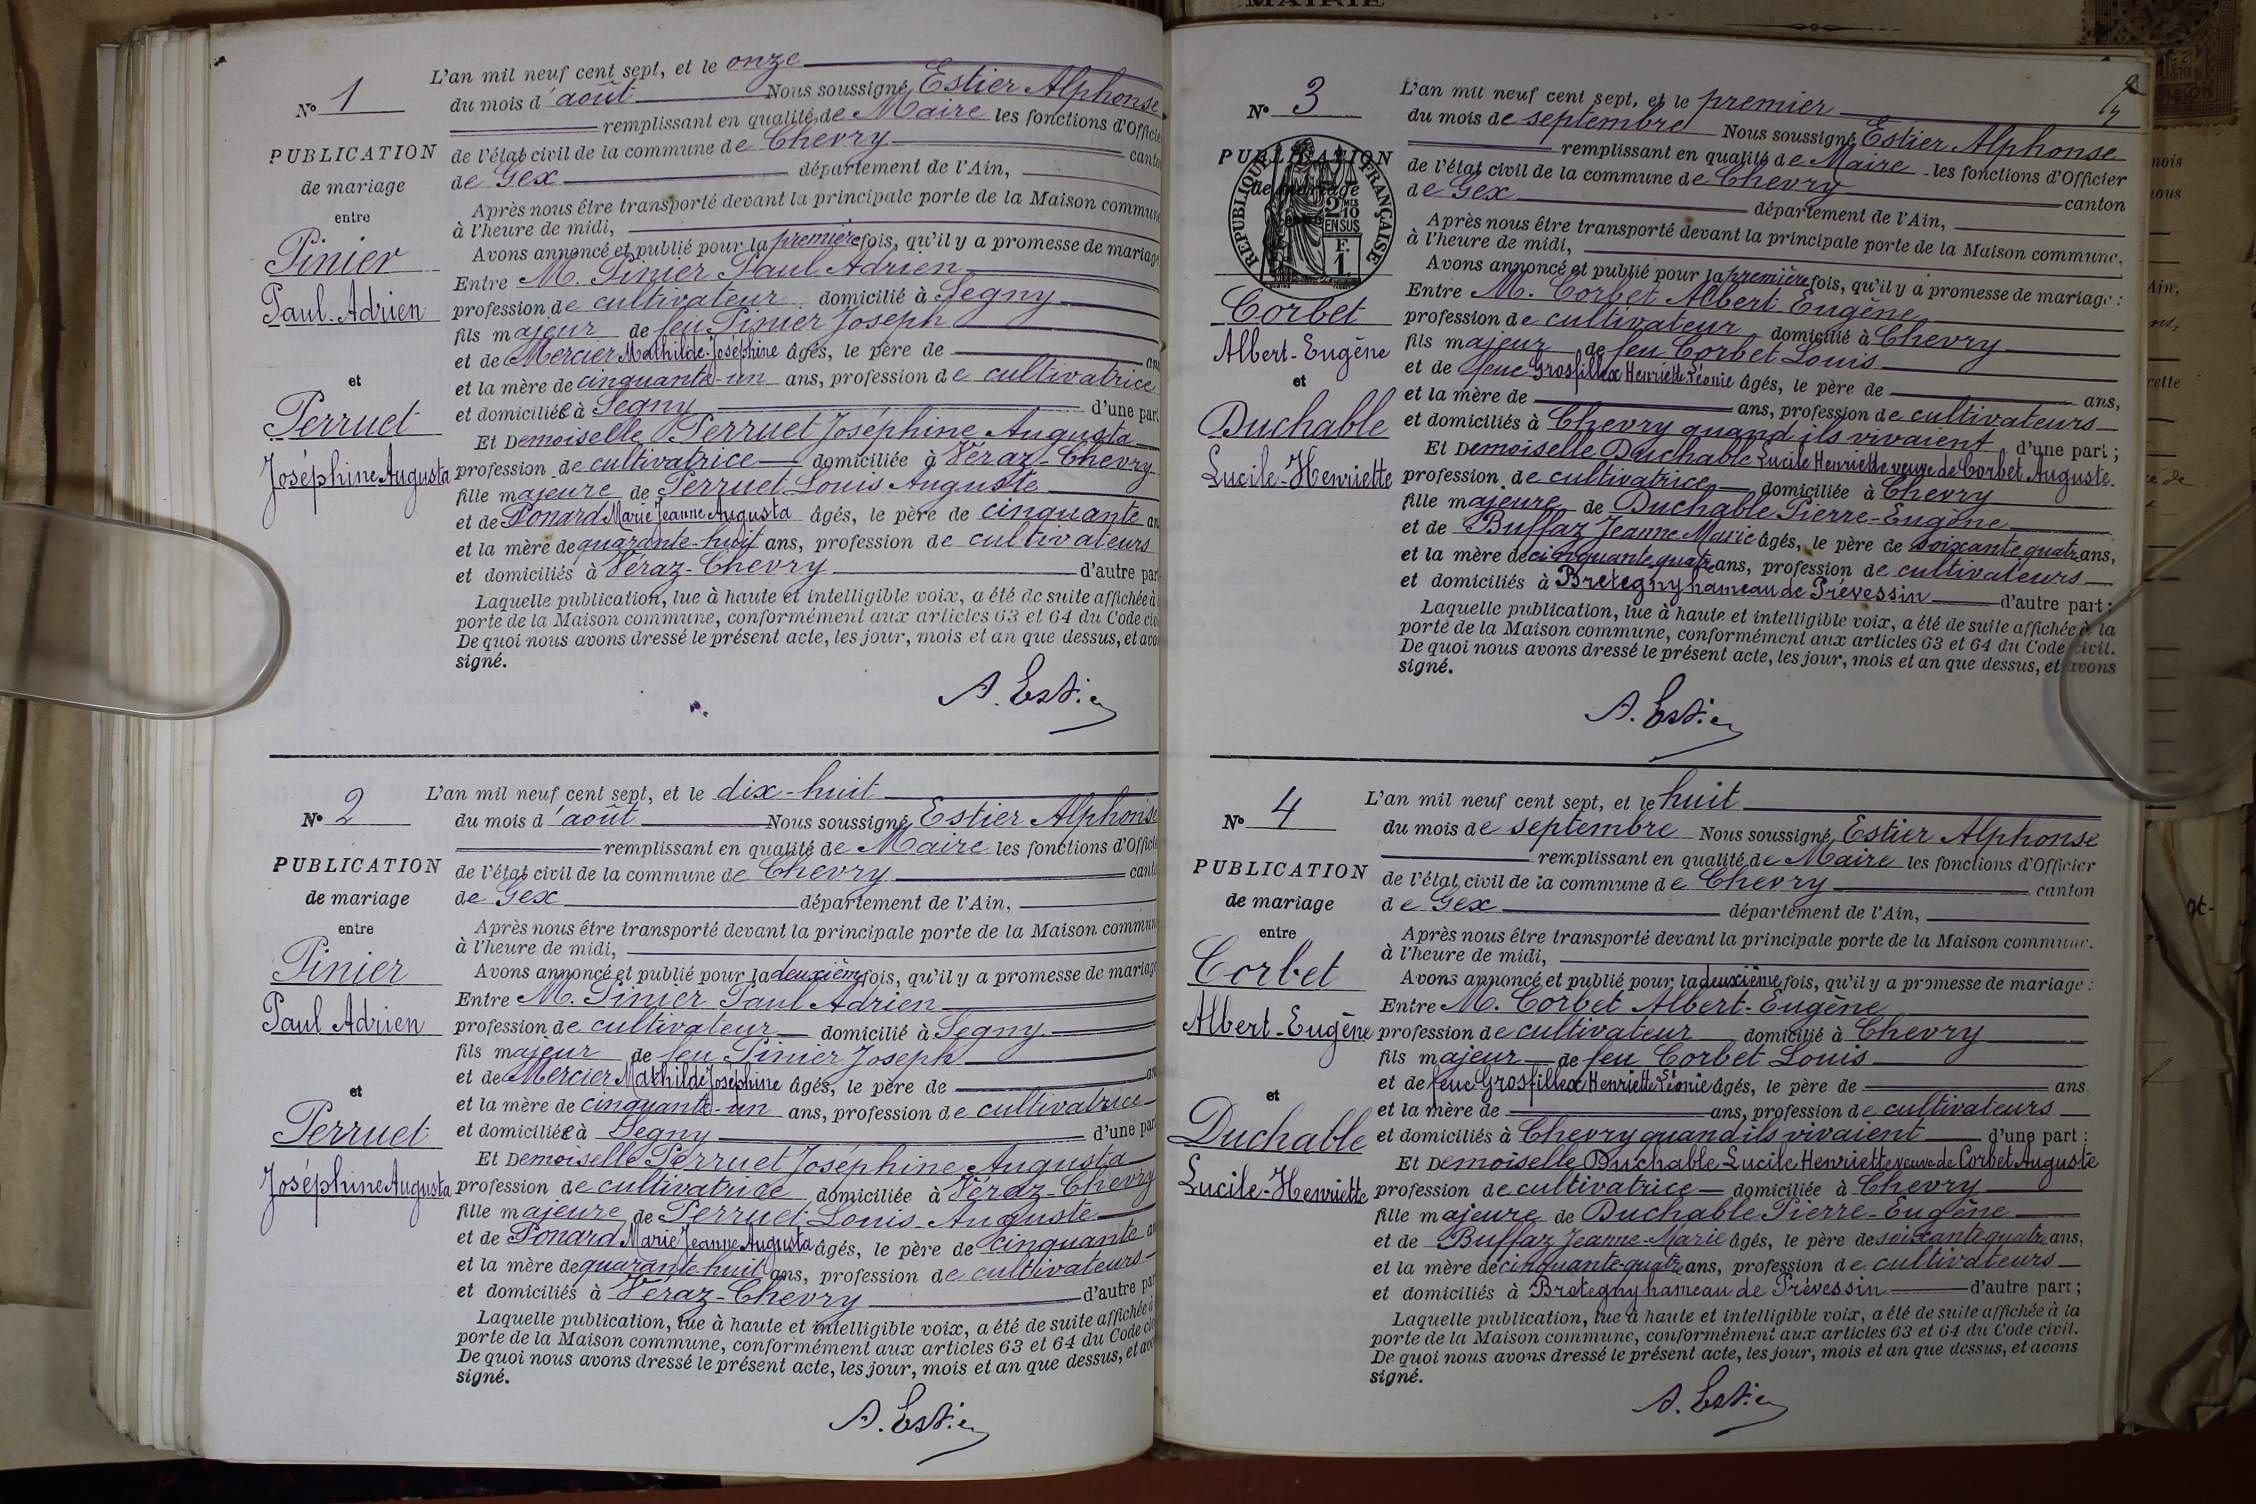 N° 1
PUBLICATION
de mariage
entre
Pinier
Paul-Adrien
et
Perruet
Joséphine Augusta
L'an mil neuf cent sept, et le onze
du mois d'août Nous soussigné, Estier Alphonse
remplissant en qualité de Maire les fonctions d'Officie
de l'état civil de la commune de Chevry canto
de Gex département de l'Ain,
Après nous être transporté devant la principale porte de la Maison commun
à l'heure de midi,
Avons annoncé et publié pour la première fois, qu'il y a promesse de mariage
Entre M. Pinier Paul Adrien
profession de cultivateur domicilié à Segny
fils majeur de feu Pinier Joseph
et de Mercier Mathilde-Joséphine âgés, le père de an
et la mère de cinquante-un ans, profession de cultivatrice
et domiciliée à Segny d'une part
Et Demoiselle Perruet Joséphine Augusta
profession de cultivatrice domiciliée à Véraz-Chevry
fille majeure de Perruet Louis Auguste
et de Ponard Marie Jeanne Augusta âgés, le père de cinquante an
et la mère de quarante-huit ans, profession de cultivateurs
et domiciliés à Véraz-Chevry d'autre par
Laquelle publication, lue à haute et intelligible voix, a été de suite affichée à
porte de la Maison commune, conformément aux articles 63 et 64 du Code civ
De quoi nous avons dressé le présent acte, les jour, mois et an que dessus, et avo
signé.
A. Estier
N° 2
PUBLICATION
de mariage
entre
Pinier
Paul Adrien
et
Perruet
Joséphine Augusta
L'an mil neuf cent sept, et le dix-huit
du mois d'août Nous soussigné, Estier Alphonse
remplissant en qualité de Maire les fonctions d'Offici
de l'état civil de la commune de Chevry cant
de Gex département de l'Ain,
Après nous être transporté devant la principale porte de la Maison commun
à l'heure de midi,
Avons annoncé et publié pour la deuxième fois, qu'il y a promesse de mariag
Entre M. Pinier Paul Adrien
profession de cultivateur domicilié à Segny
fils majeur de feu Pinier Joseph
et de Mercier Mathilde Joséphine âgés, le père de an
et la mère de cinquante-un ans, profession de cultivatrice
et domiciliée à Segny d'une par
Et Demoiselle Perruet Joséphine Augusta
profession de cultivatrice domiciliée à Véraz-Chevry
fille majeure de Perruet Louis Auguste
et de Ponard Marie Jeanne Augusta âgés, le père de cinquante an
et la mère de quarante-huit ans, profession de cultivateurs
et domiciliés à Véraz-Chevry d'autre par
Laquelle publication, lue à haute et intelligible voix, a été de suite affichée à
porte de la Maison commune, conformément aux articles 63 et 64 du Code civ
De quoi nous avons dressé le présent acte, les jour, mois et an que dessus, et avo
signé.
A. Estier
MAIRIE
N° 3
PUBLICATION
de mariage
RÉPUBLIQUE FRANÇAISE
2 MES
10
EN SUS
F.
1.
Corbet
Albert-Eugène
et
Duchable
Lucile-Henriette
2
L'an mil neuf cent sept, et le premier
du mois de septembre Nous soussigné, Estier Alphonse
remplissant en qualité de Maire les fonctions d'Officier
de l'état civil de la commune de Chevry canton
de Gex département de l'Ain,
Après nous être transporté devant la principale porte de la Maison commune,
à l'heure de midi,
Avons annoncé et publié pour la première fois, qu'il y a promesse de mariage :
Entre M. Corbet Albert Eugène
profession de cultivateur domicilié à Chevry
fils majeur de feu Corbet Louis
et de feue Grosfillex Henriette Léonie âgés, le père de ans,
et la mère de ans, profession de cultivateurs
et domiciliés à Chevry quand ils vivaient d'une part ;
Et Demoiselle Duchable Lucile Henriette veuve de Corbet Auguste
profession de cultivatrice domiciliée à Chevry
fille majeure de Duchable Pierre-Eugène
et de Buffaz Jeanne Marie âgés, le père de soixante quatre ans,
et la mère de cinquante quatre ans, profession de cultivateurs
et domiciliés à Bretegny hameau de Prévessin d'autre part ;
Laquelle publication, lue à haute et intelligible voix, a été de suite affichée à la
porte de la Maison commune, conformément aux articles 63 et 64 du Code civil.
De quoi nous avons dressé le présent acte, les jour, mois et an que dessus, et avons
signé.
A. Estier
N° 4
PUBLICATION
de mariage
entre
Corbet
Albert-Eugène
et
Duchable
Lucile-Henriette
L'an mil neuf cent sept, et le huit
du mois de septembre Nous soussigné, Estier Alphonse
remplissant en qualité de Maire les fonctions d'Officier
de l'état civil de la commune de Chevry canton
de Gex département de l'Ain,
Après nous être transporté devant la principale porte de la Maison commune.
à l'heure de midi,
Avons annoncé et publié pour la deuxième fois, qu'il y a promesse de mariage :
Entre M. Corbet Albert-Eugène
profession de cultivateur domicilié à Chevry
fils majeur de feu Corbet Louis
et de feue Grosfillex Henriette Léonie âgés, le père de ans.
et la mère de ans, profession de cultivateurs
et domiciliés à Chevry quand ils vivaient d'une part ;
Et Demoiselle Duchable Lucile Henriette veuve de Corbet Auguste
profession de cultivatrice domiciliée à Chevry
fille majeure de Duchable Pierre-Eugène
et de Buffaz Jeanne-Marie âgés, le père de soixante quatre ans,
et la mère de cinquante-quatre ans, profession de cultivateurs
et domiciliés à Bretegny hameau de Prévessin d'autre part ;
Laquelle publication, lue à haute et intelligible voix, a été de suite affichée à la
porte de la Maison commune, conformément aux articles 63 et 64 du Code civil.
De quoi nous avons dressé le présent acte, les jour, mois et an que dessus, et avons
signé.
A. Estier